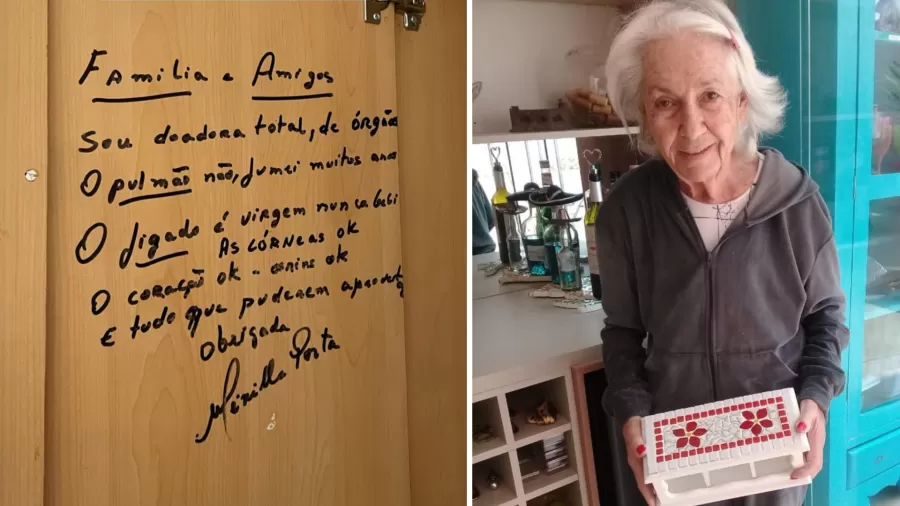 Família e Amigos
Sou doadora total, de órgão
O pulmão não, fumei muitos anos
O figado é virgem nunca bebi
As córneas ok
O coração ok - ok
E tudo que puderem aproveitar
Obrigada